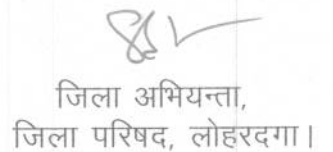 जिला अभियन्ता,
जिला परिषद, लोहरदगा।